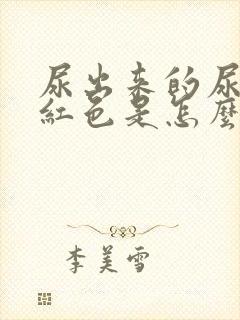 尿出来的尿
紅色是怎麼
李美雪